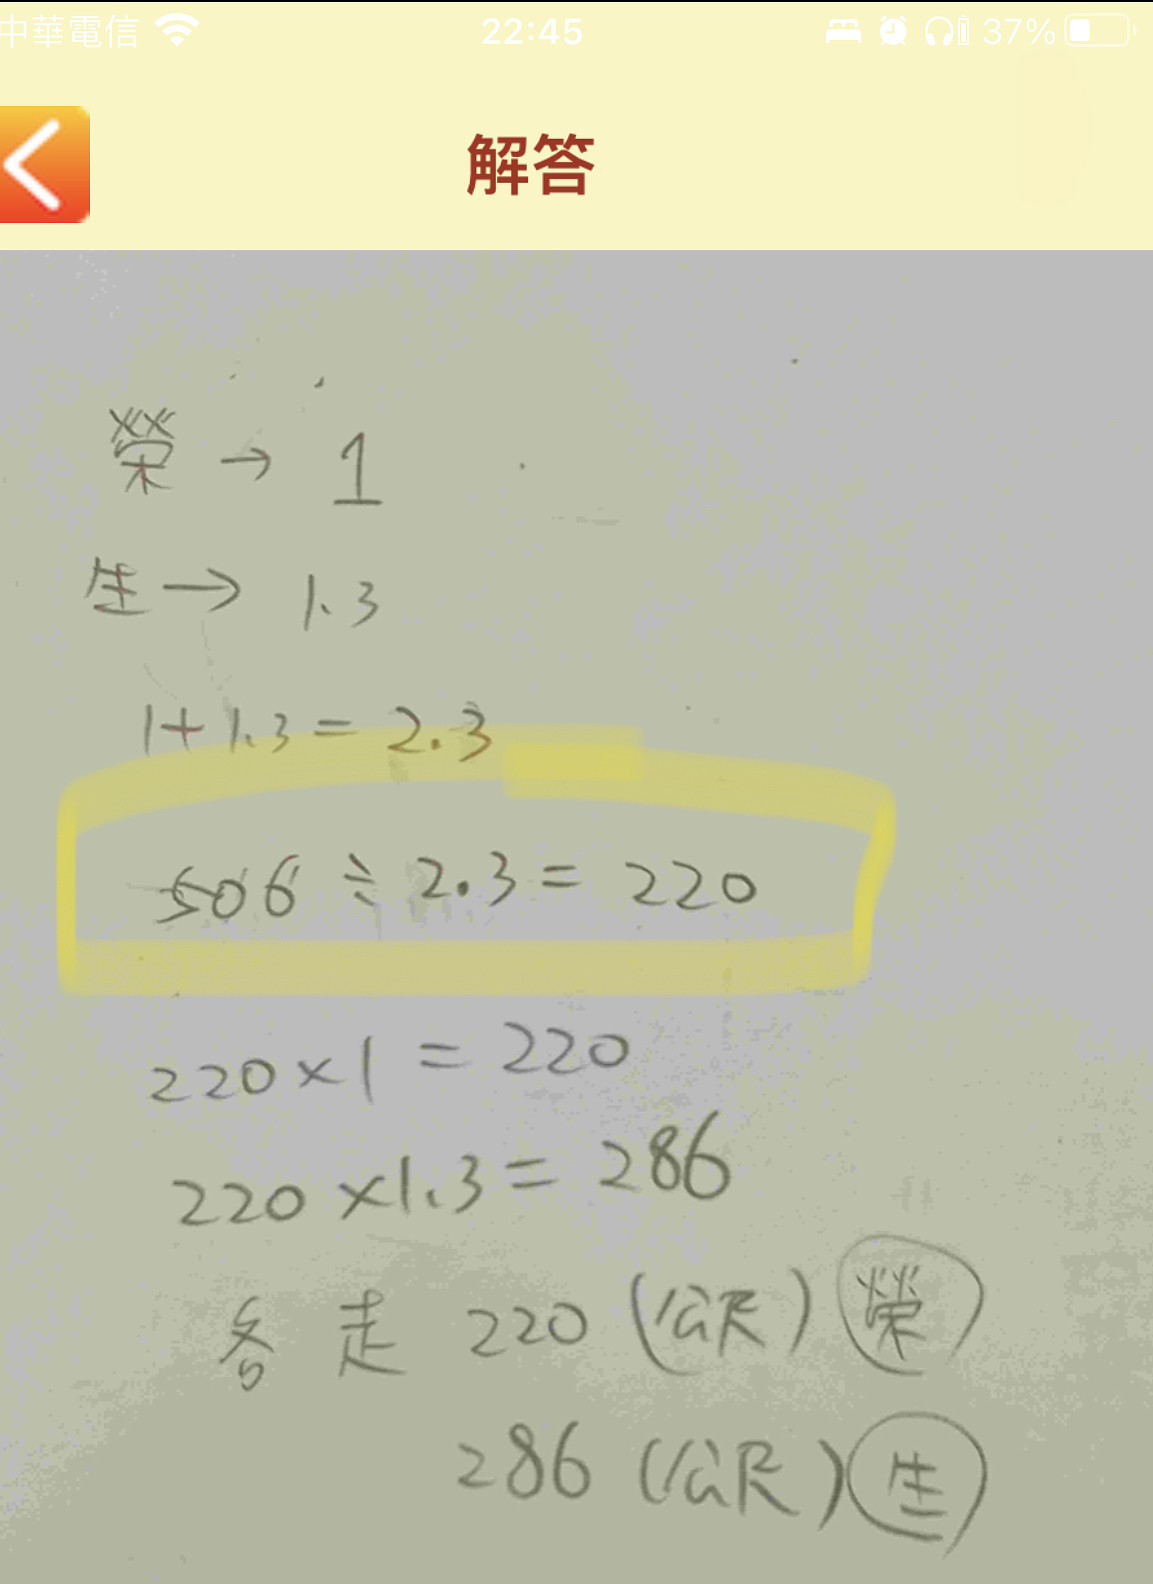 中華電信 22:45 37%
解答
榮 → 1
生 → 1.3
1+1.3=2.3
506÷2.3=220
220×1=220
220×1.3=286
各走 220(公尺) 榮
286(公尺) 生